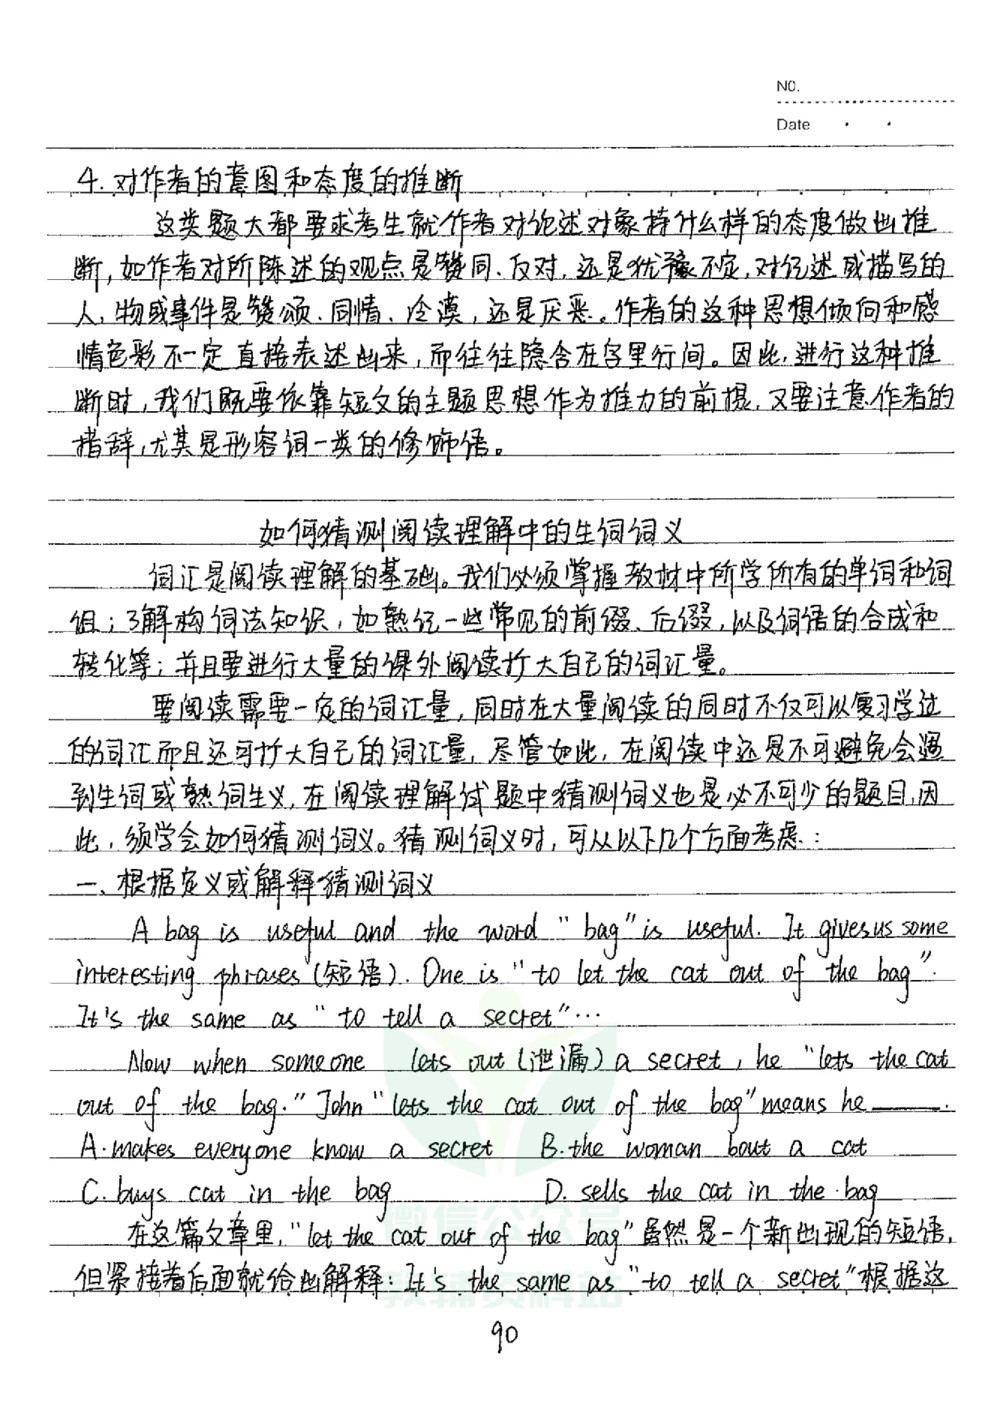 NO.
Date
4.对作者的意图和态度的推断
这类题大都要求考生就作者对论述对象持什么样的态度做出推
断,如作者对所陈述的观点是赞同、反对,还是犹豫不定,对记述或描写的
人、物或事件是赞颂、同情、冷漠,还是厌恶。作者的这种思想倾向和感
情色彩不一定直接表述出来,而往往隐含在字里行间。因此,进行这种推
断时,我们既要依靠短文的主题思想作为推力的前提,又要注意作者的
措辞,尤其是形容词一类的修饰语。
如何猜测阅读理解中的生词词义
词汇是阅读理解的基础。我们必须掌握教材中所学所有的单词和词
组;了解构词法知识,如熟记一些常见的前缀、后缀,以及词语的合成和
转化等;并且要进行大量的课外阅读扩大自己的词汇量。
要阅读需要一定的词汇量,同时在大量阅读的同时不仅可以复习学过
的词汇而且还可扩大自己的词汇量,尽管如此,在阅读中还是不可避免会遇
到生词或熟词生义,在阅读理解试题中猜测词义也是必不可少的题目,因
此,须学会如何猜测词义。猜测词义时,可从以下几个方面考虑:
一、根据定义或解释猜测词义
A bag is useful and the word "bag" is useful. It gives us some
interesting phrases(短语). One is "to let the cat out of the bag".
It's the same as "to tell a secret"…
Now when someone lets out(泄漏) a secret, he "lets the cat
out of the bag." John "lets the cat out of the bag" means he ______.
A.makes everyone know a secret B.the woman bout a cat
C.buys cat in the bag D. sells the cat in the bag
在这篇文章里,"let the cat out of the bag"虽然是一个新出现的短语,
但紧接着后面就给出解释:It's the same as "to tell a secret"根据这
微信公众号
教辅资料站
90